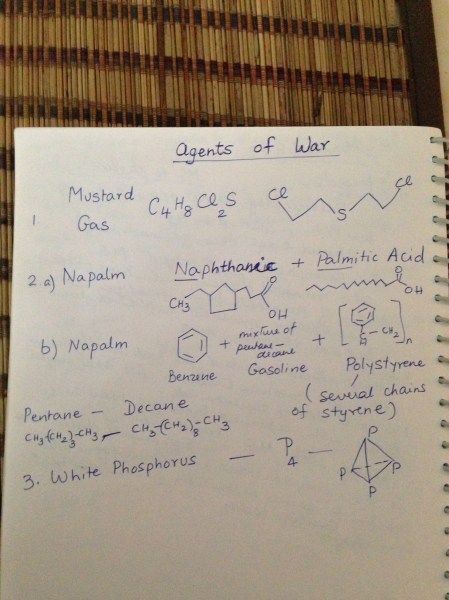 Agents of War
1 Mustard Gas C4H8Cl2S Cl S Cl
2.a) Napalm Naphthanic + Palmitic Acid
CH3 O OH O OH
b) Napalm + mixture of pentane - decane + [ CH2 ]n
Benzene Gasoline Polystyrene
(several chains of styrene)
Pentane - Decane
CH3-(CH2)3-CH3 - CH3-(CH2)8-CH3
3. White Phosphorus - P4 - P P P P